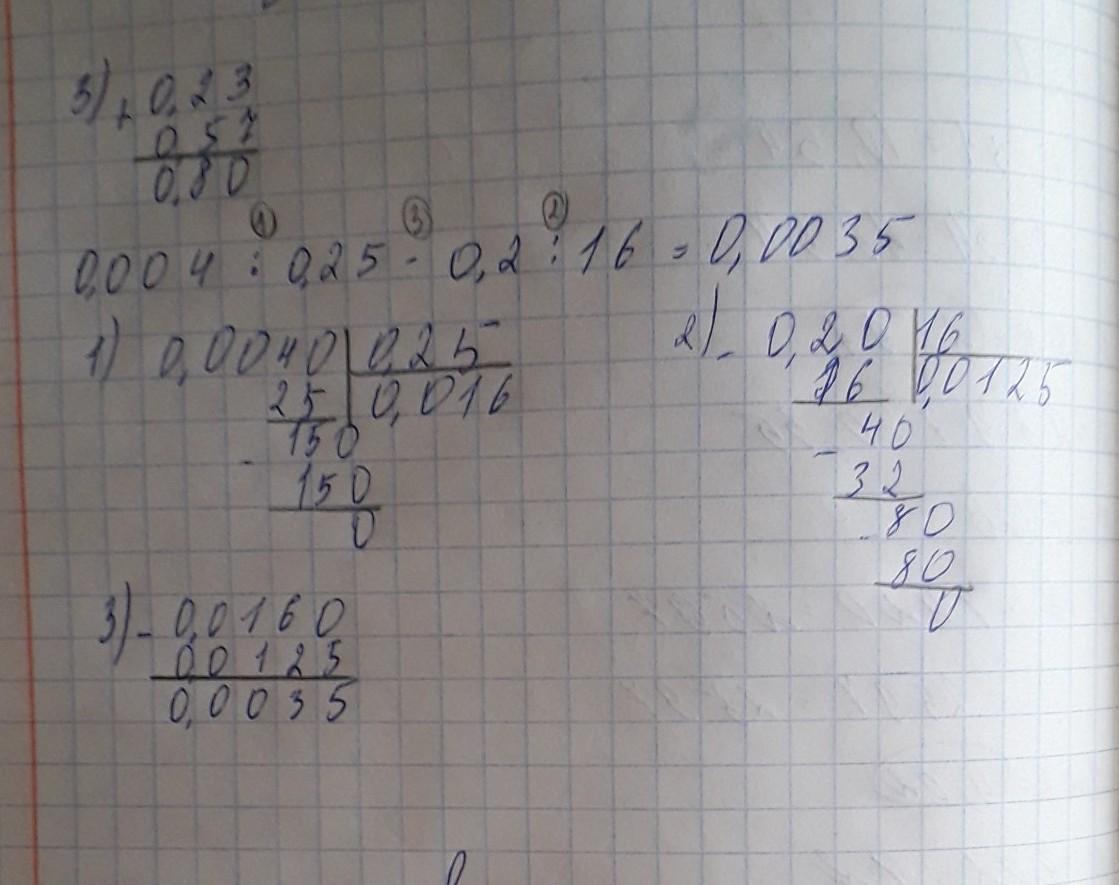 3) + 0,23
0,57
0,80
① ③ ②
0,004 : 0,25 - 0,2 : 16 = 0,0035
1) 0,0040 | 0,25
25 | 0,016
150
- 150
0
2) - 0,20 | 16
16 | 0,0125
40
- 32
80
- 80
0
3) - 0,0160
0,0125
0,0035